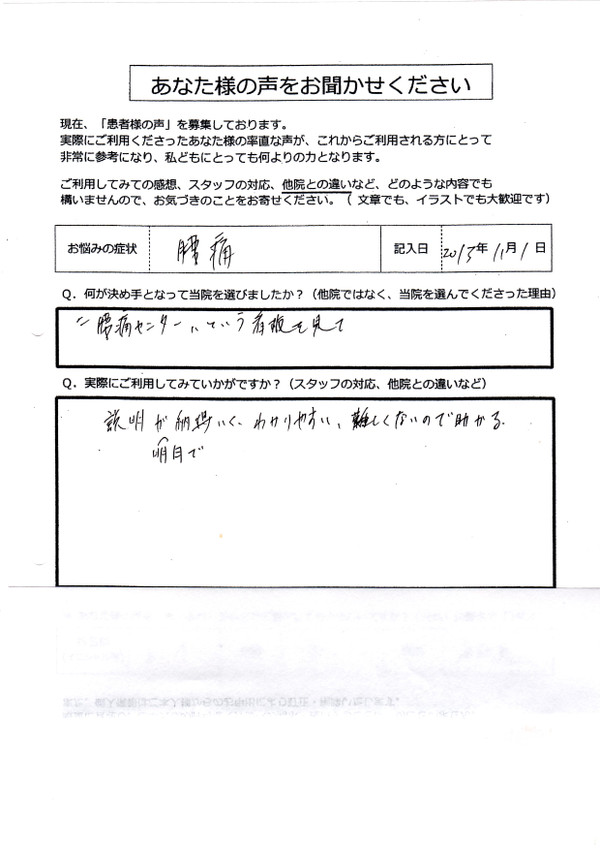 あなた様の声をお聞かせください
現在、「患者様の声」を募集しております。
実際にご利用くださったあなた様の率直な声が、これからご利用される方にとって
非常に参考になり、私どもにとっても何よりの力となります。
ご利用してみての感想、スタッフの対応、他院との違いなど、どのような内容でも
構いませんので、お気づきのことをお寄せください。（ 文章でも、イラストでも大歓迎です）
お悩みの症状 腰痛 記入日 2013年11月1日
Q．何が決め手となって当院を選びましたか？（他院ではなく、当院を選んでくださった理由）
〝腰痛センター〟という看板を見て
Q．実際にご利用してみていかがですか？（スタッフの対応、他院との違いなど）
説明が納得いく、わかりやすい、難しくないので助かる。
明白で